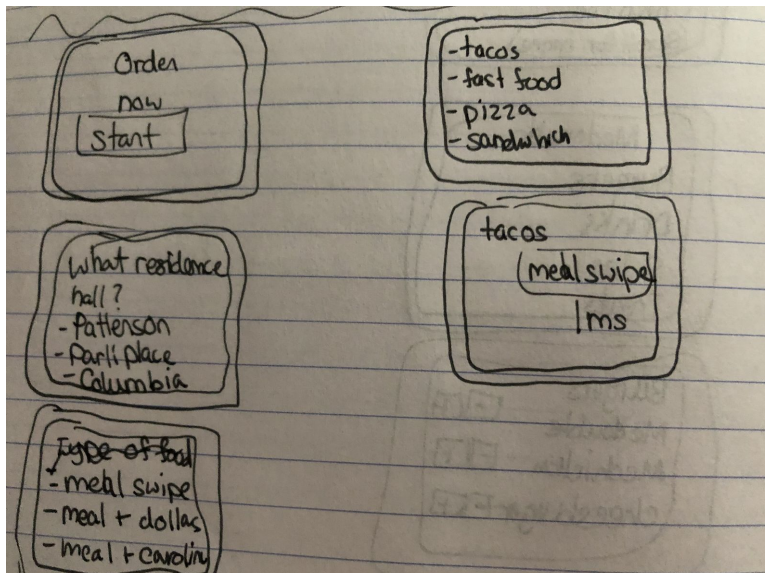 Order
now
start
What residence
hall?
- Patterson
- Park place
- Columbia
Type of food
- meal swipe
- meal + dollas
- meal + carolin
- tacos
- fast food
- pizza
- sandwhich
tacos
meal swipe
1 ms